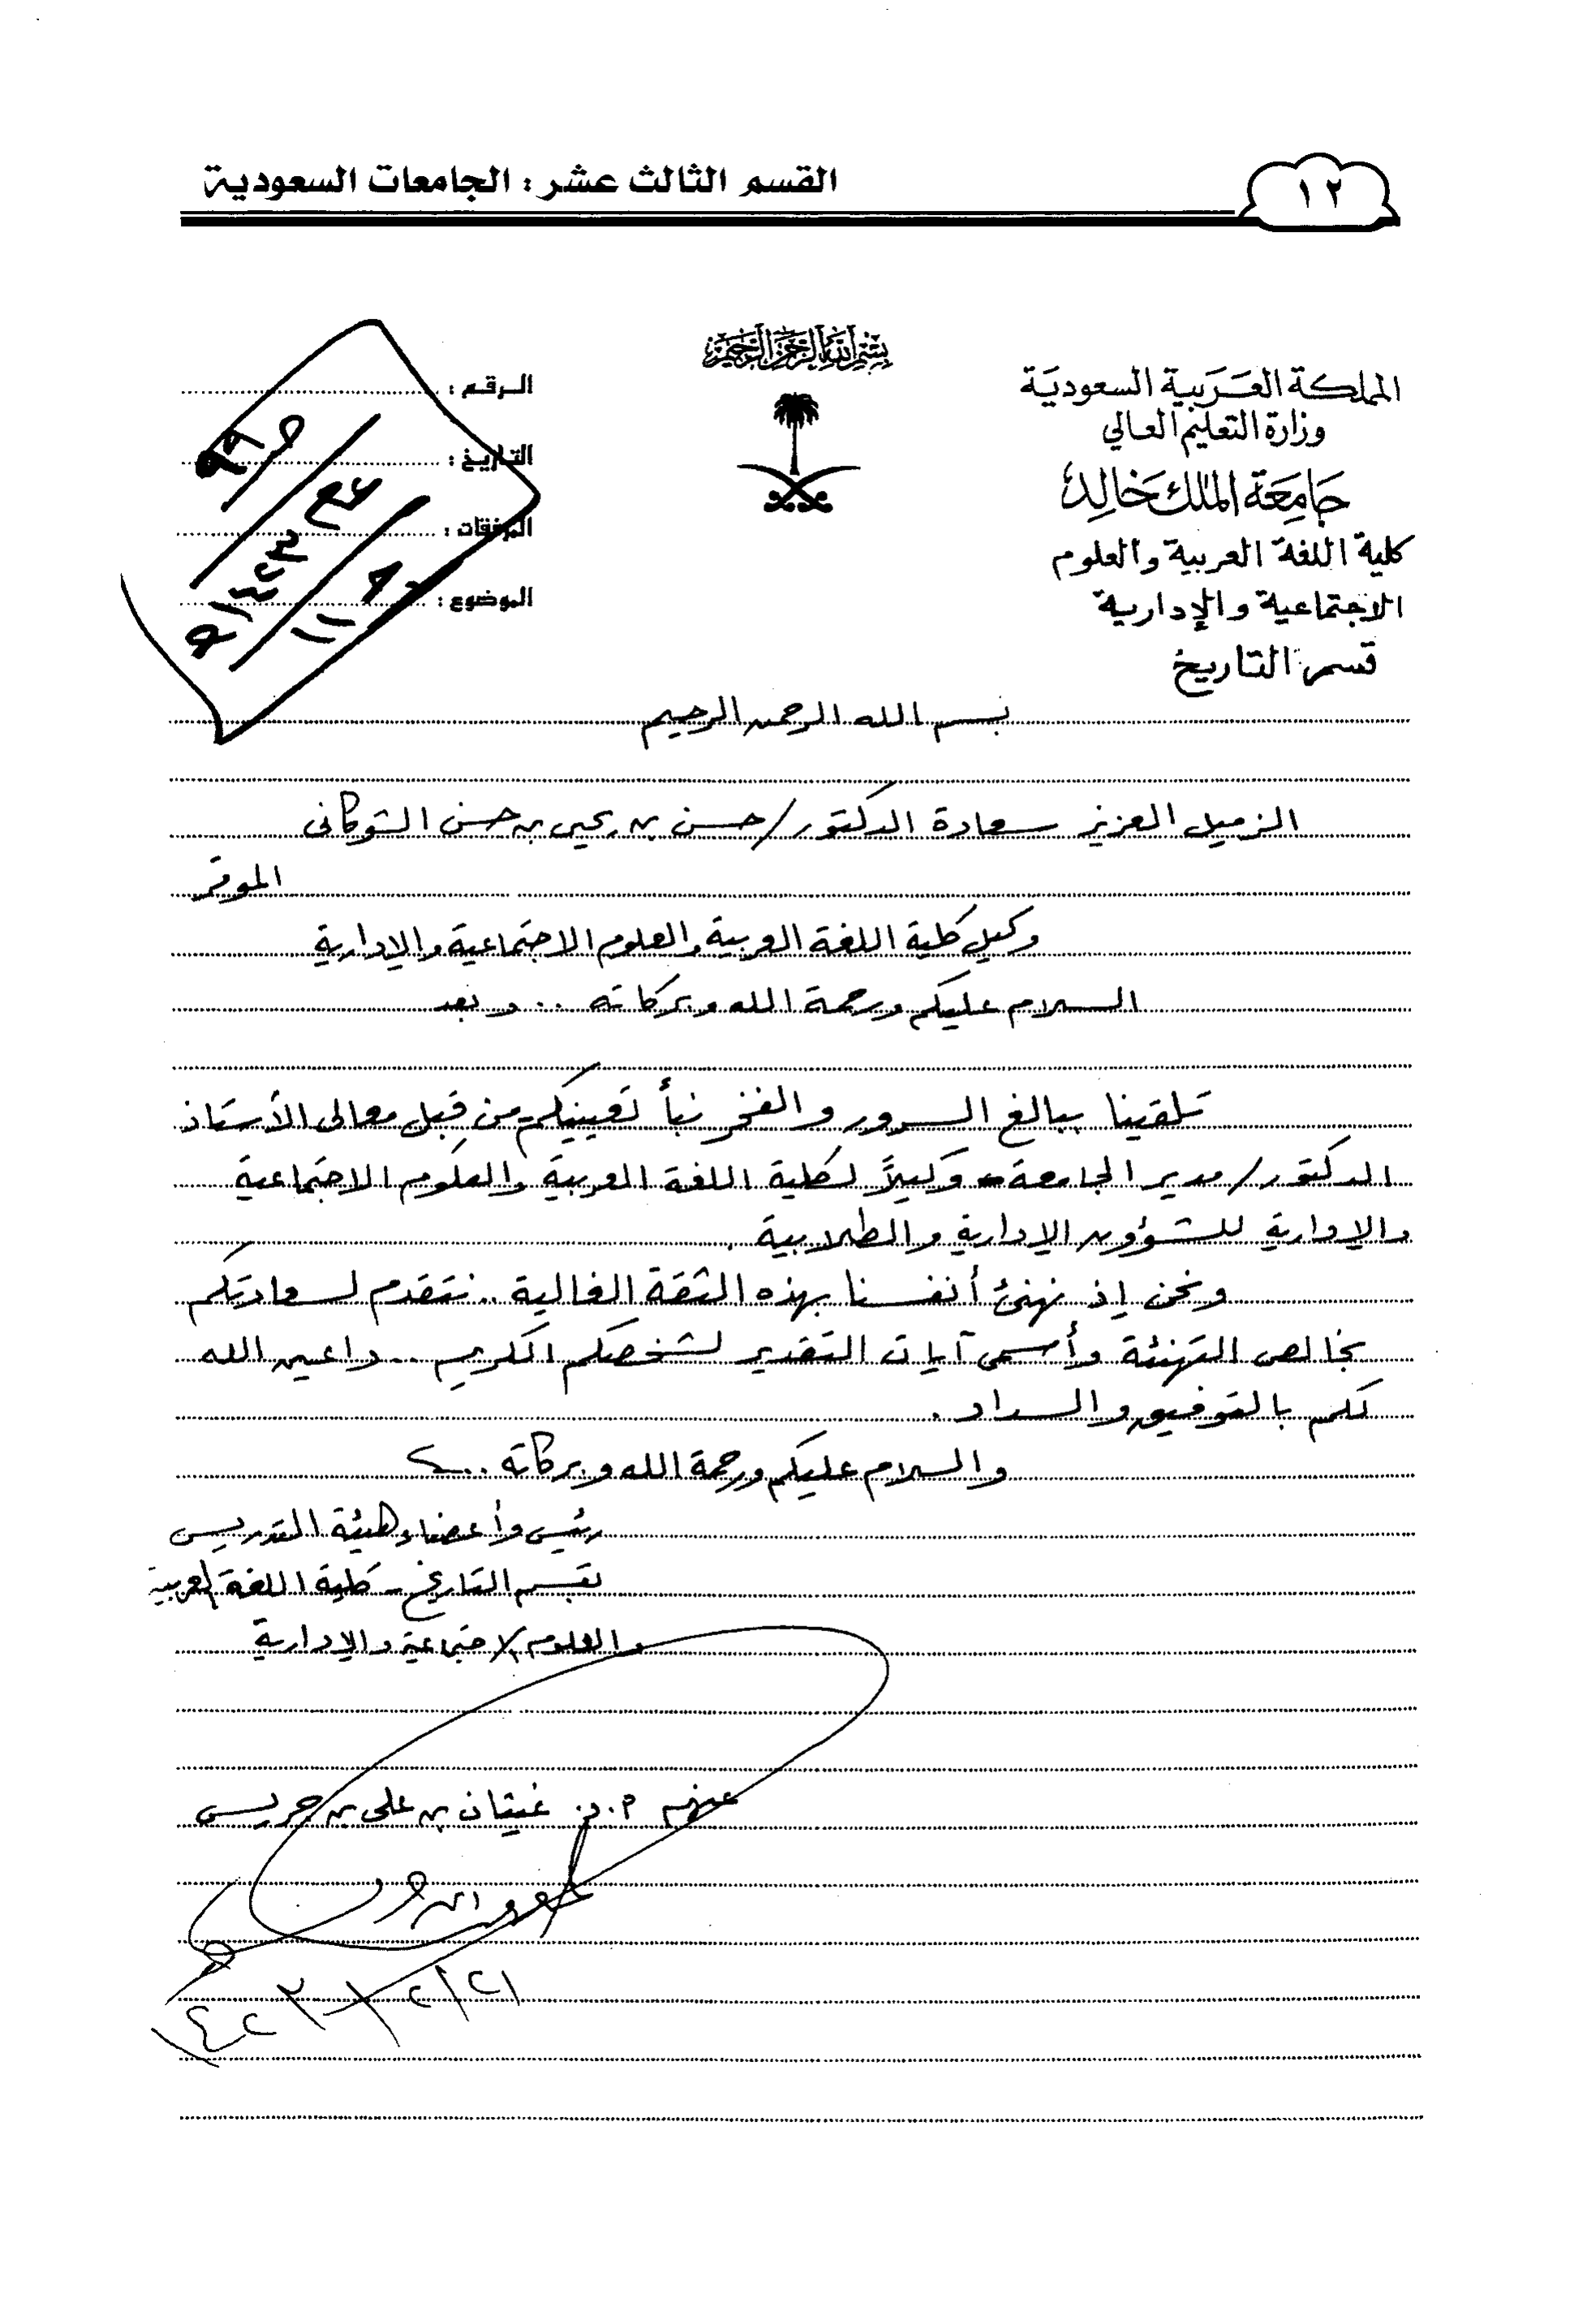 ١٢
القسم الثالث عشر : الجامعات السعودية
بسم الله الرحمن الرحيم
المملكة العربية السعودية
وزارة التعليم العالي
جامعة الملك خالد
كلية اللغة العربية والعلوم
الاجتماعية والإدارية
قسم التاريخ
الرقم :
التاريخ :
المرفقات :
الموضوع :
بسم الله الرحمن الرحيم
الزميل العزيز سعادة الدكتور/حسن بن يحيى بن حسن الشوكاني
الموقر
وكيل كلية اللغة العربية والعلوم الاجتماعية والإدارية
السلام عليكم ورحمة الله وبركاته .. وبعد
تلقينا ببالغ السرور والفخر نبأ تعيينكم من قِبل معالي الأستاذ
الدكتور/مدير الجامعة وكيلاً لكلية اللغة العربية والعلوم الاجتماعية
والإدارية للشؤون الإدارية والطلابية .
ونحن إذ نهنئ أنفسنا بهذه الثقة الغالية .. نتقدم لسعادتكم
بخالص التهنئة وأسمى آيات التقدير لشخصكم الكريم .. داعين الله
لكم بالتوفيق والسداد .
والسلام عليكم ورحمة الله وبركاته ..
رئيس وأعضاء هيئة التدريس
بقسم التاريخ - كلية اللغة العربية
والعلوم الاجتماعية والإدارية
عنهم أ.د. غيثان بن علي بن جريس